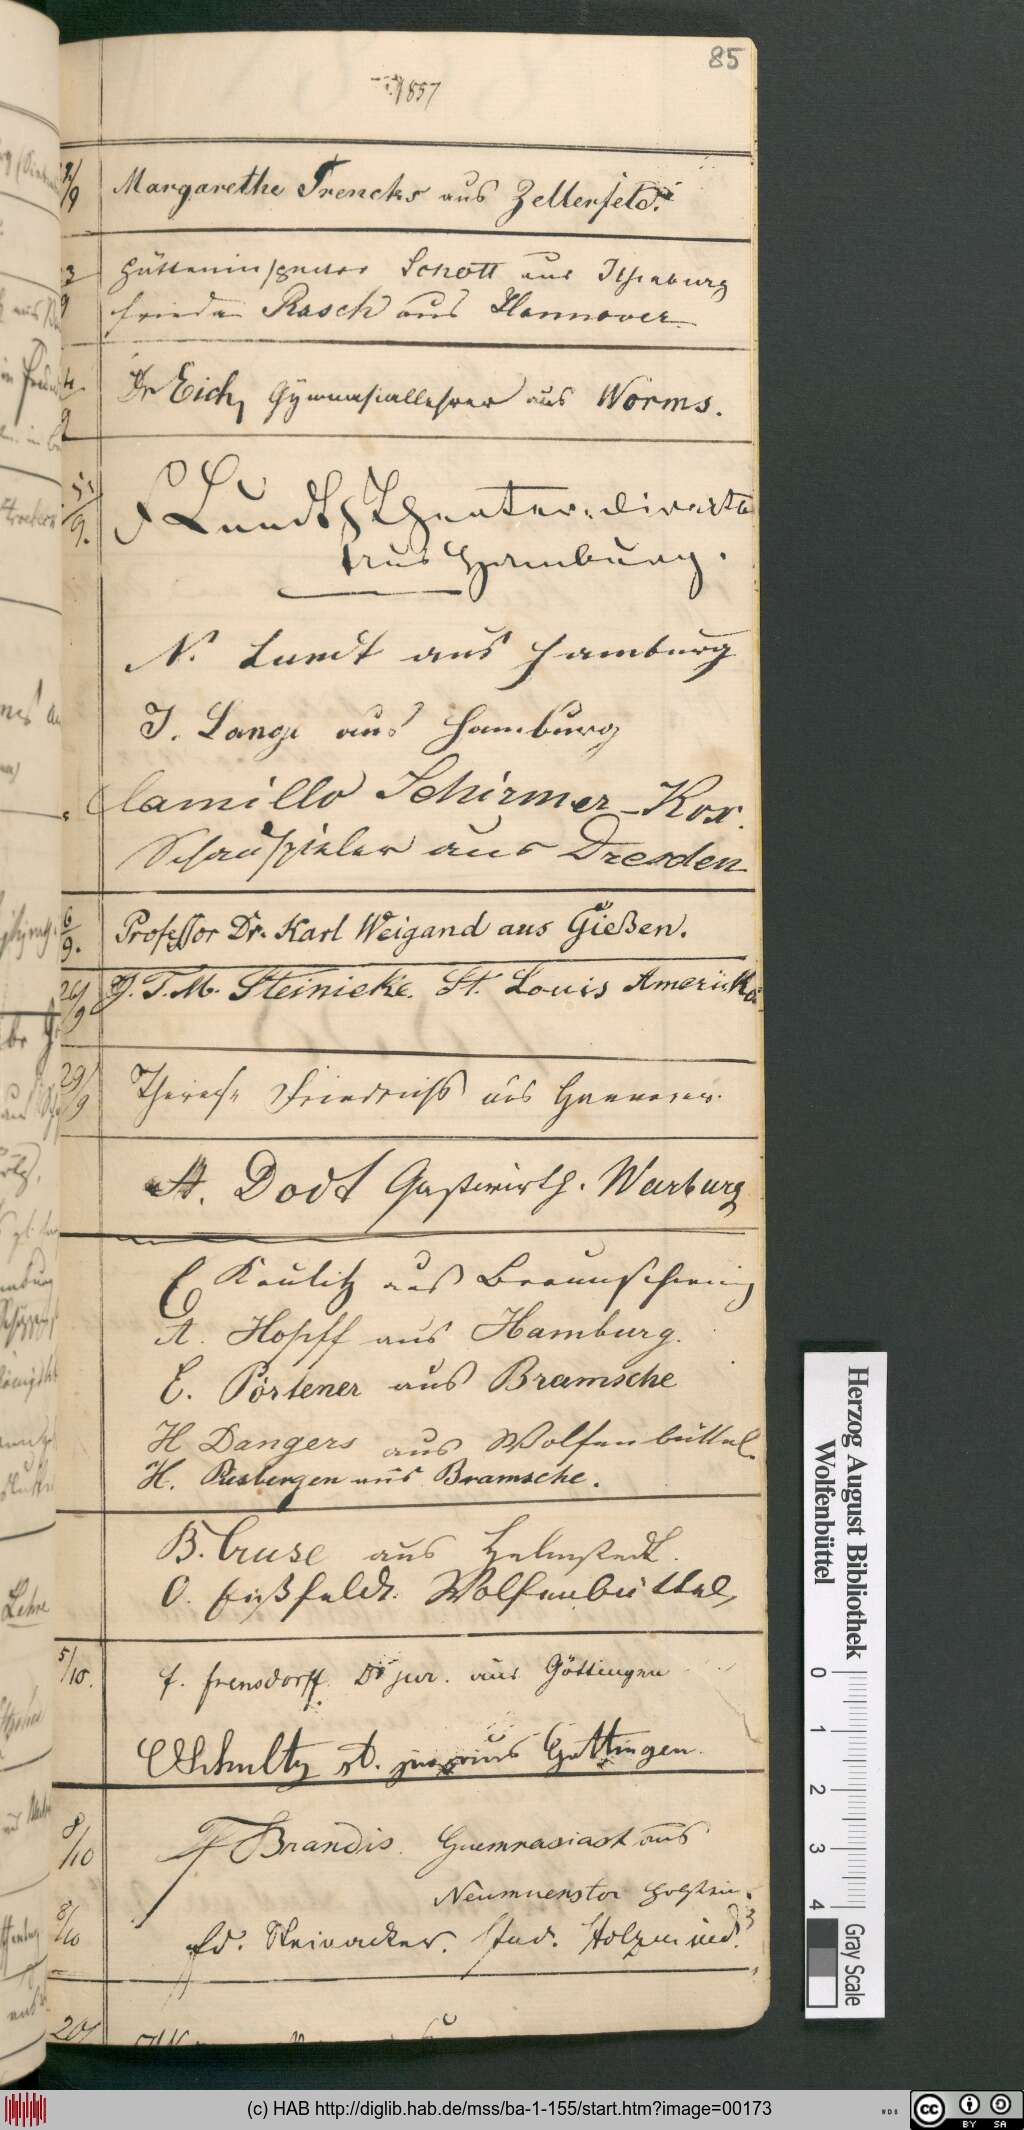 85
1857
2/9 Margarethe Trencks aus Zellerfeld.
3/9 Hütteninspector Schott aus Ilsenburg
Frieda Rasch aus Hannover
4/9 Dr Eich, Gymnasiallehrer aus Worms.
5/9. Lundt, Theater-director
aus Hamburg.
N. Lundt aus Hamburg
J. Lange aus Hamburg
Camillo Schirmer-Kox.
Schauspieler aus Dresden
6/9. Professor Dr. Karl Weigand aus Gießen.
26/9 J. T. M. Steinicke. St. Louis Amerika
29/9 Therese Friedrichs aus Hannover.
A. Dodt Gastwirth. Warburg
E Kaulitz aus Braunschweig
A. Hopff aus Hamburg.
E. Pörtener aus Bramsche
H Dangers aus Wolfenbüttel.
H. Rasbergen aus Bramsche.
B. Cruse aus Helmstedt.
O. Eißfeldt. Wolfenbüttel,
5/10. F. Frensdorff. Dr jur. aus Göttingen
C Schultz st. jur. aus Göttingen.
8/10 F Brandis. Guemnasiast aus
Neumuenster Holstein.
8/10 Ed. Steinacker. stud. Holzmind.
20/
Herzog August Bibliothek
Wolfenbüttel
0 1 2 3 4 Gray Scale
(c) HAB http://diglib.hab.de/mss/ba-1-155/start.htm?image=00173
WDB
cc BY SA